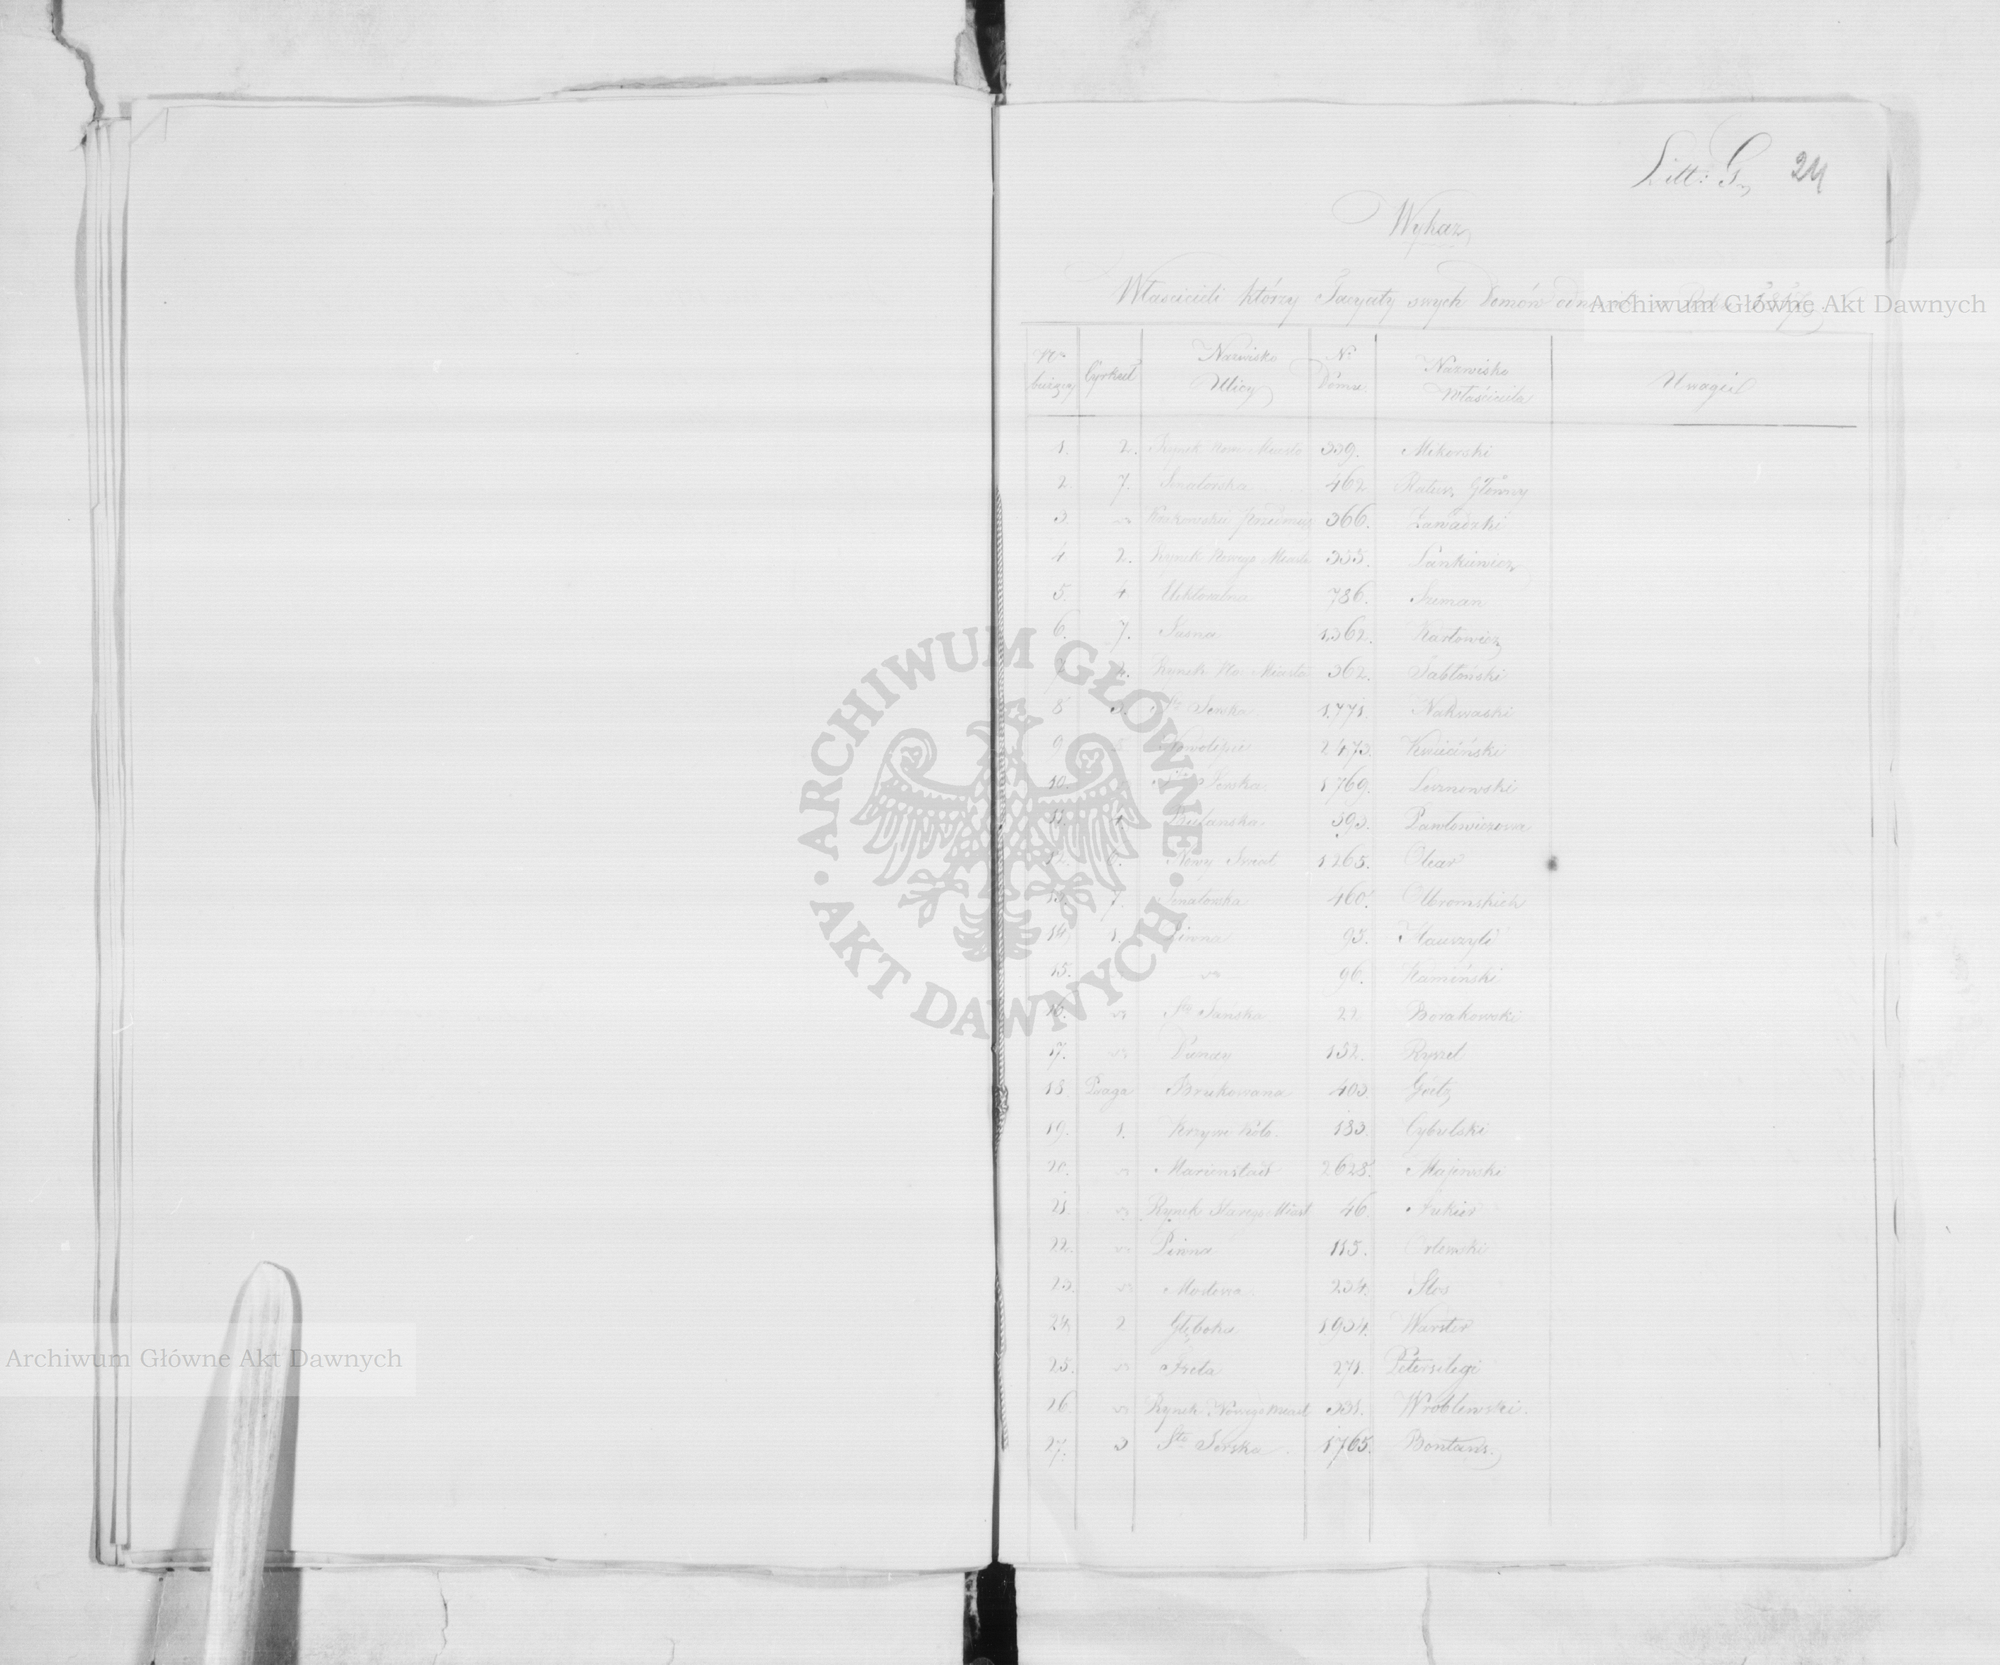 Litt: G. 24
Wykaz
Właścicieli którzy Facyaty swych Domów
Nr bieżący Cyrkuł Nazwisko Ulicy Nr Domu Nazwisko Właściciela Uwagi
1. 2. Rynek Nowe Miasto 339. Mikorski
2. 7. Senatorska 462 Ratusz Główny
3. " Krakowskie Przedmieś 366. Zawadzki
4 2. Rynek Nowego Miasta 335. Lankiewicz
5. 4 786. Szuman
6. 7. Jasna 1362. Karłowicz
7 2. Rynek No: Miasta 362. Jabłoński
8 3. Sto Jerska 1771. Nakwaski
9 5 Nowolipie 2473. Kwieciński
10. Sto Jerska 1769. Lesznowski
11. Bielańska 593. Pawłowiczowa
12. 6. Nowy Świat 1265. Olear
13. 7. Senatorska 460. Olbromskich
14 1. Piwna 93.
15. " " 96. Kamiński
16. " Sto Jańska 22 Borakowski
17. " Dunay 132.
18. Praga Brukowana 403. Goetz
19. 1. Krzywe Koło 183. Cybulski
20. " Marienstadt 2625. Majewski
21. " Rynek Starego Miast 46. Fukier
22. " Piwna 115. Orłowski
23. " Mostowa 234. Stos
24 2 Głęboka 1934. Warster
25. " Freta 271. Petersilegi
26. " Rynek Nowego Miast 331. Wróblewski.
27. 3 Sto Jerska 1765. Bontani.
Archiwum Główne Akt Dawnych
ARCHIWUM GŁÓWNE • AKT DAWNYCH •
Archiwum Główne Akt Dawnych